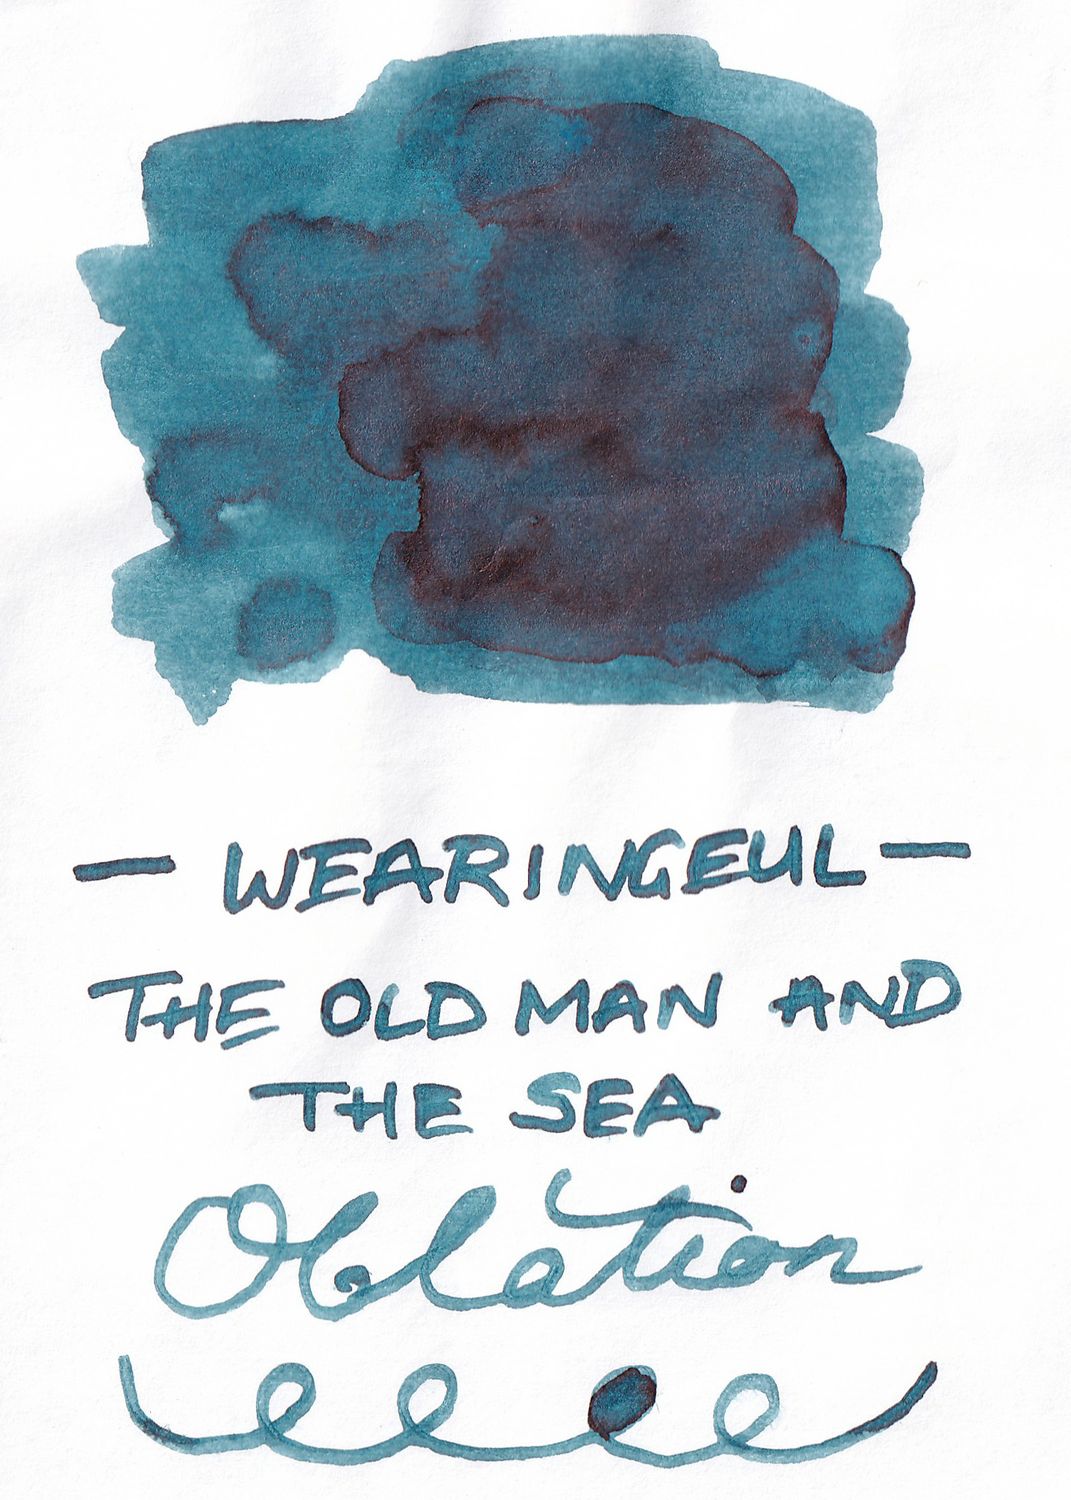 — WEARINGEUL —
THE OLD MAN AND
THE SEA
Oblation